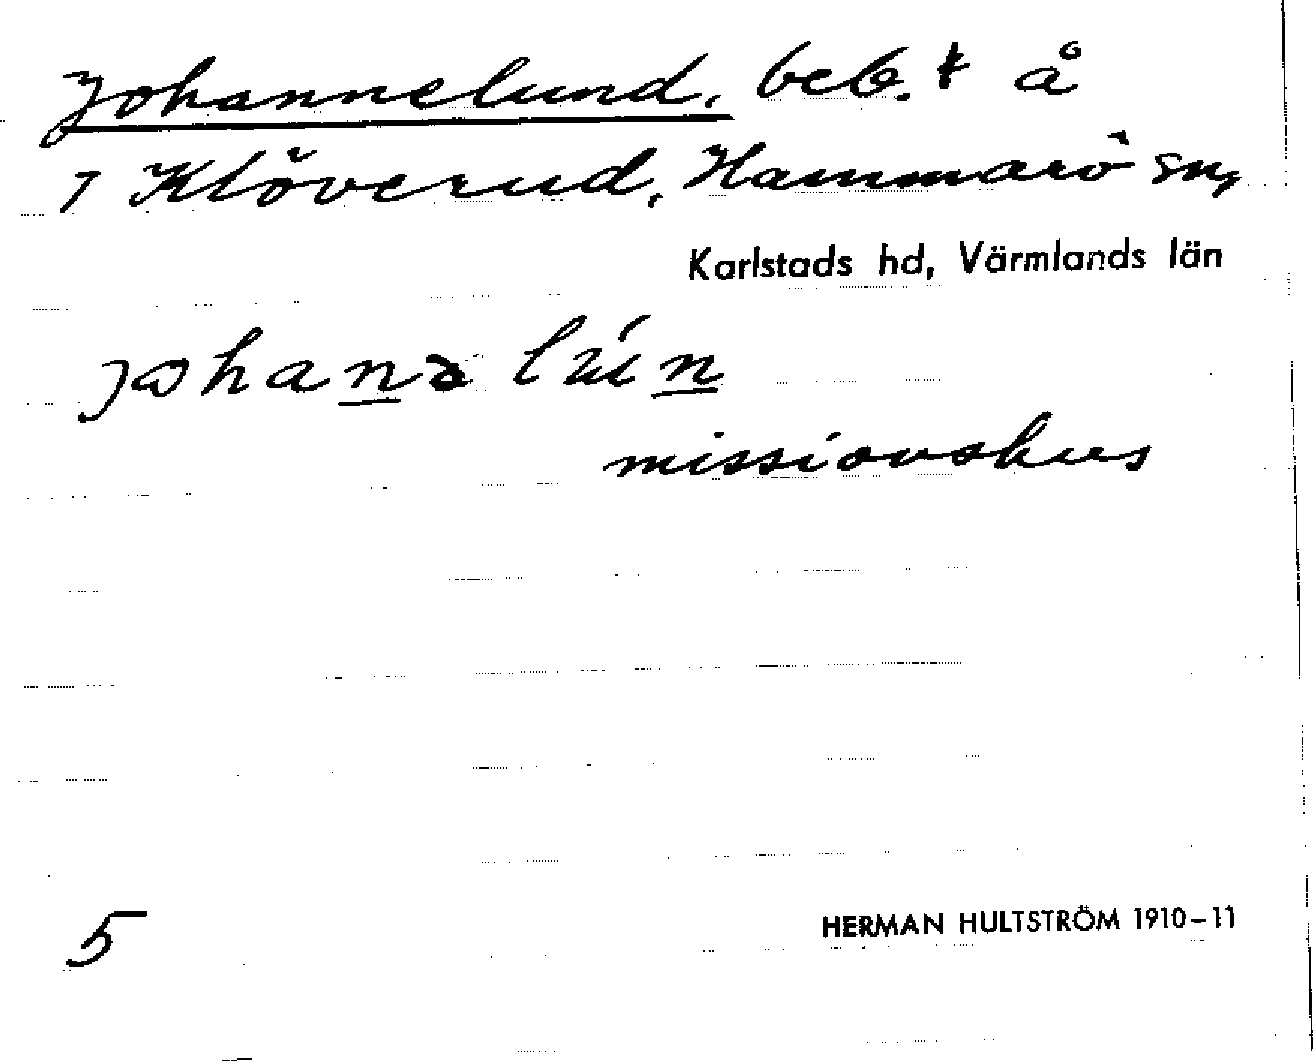 Johannelund, beb. t å
7 Klöverud, Hammarö sn,
Karlstads hd, Värmlands län
missionshus
5
HERMAN HULTSTRÖM 1910–11